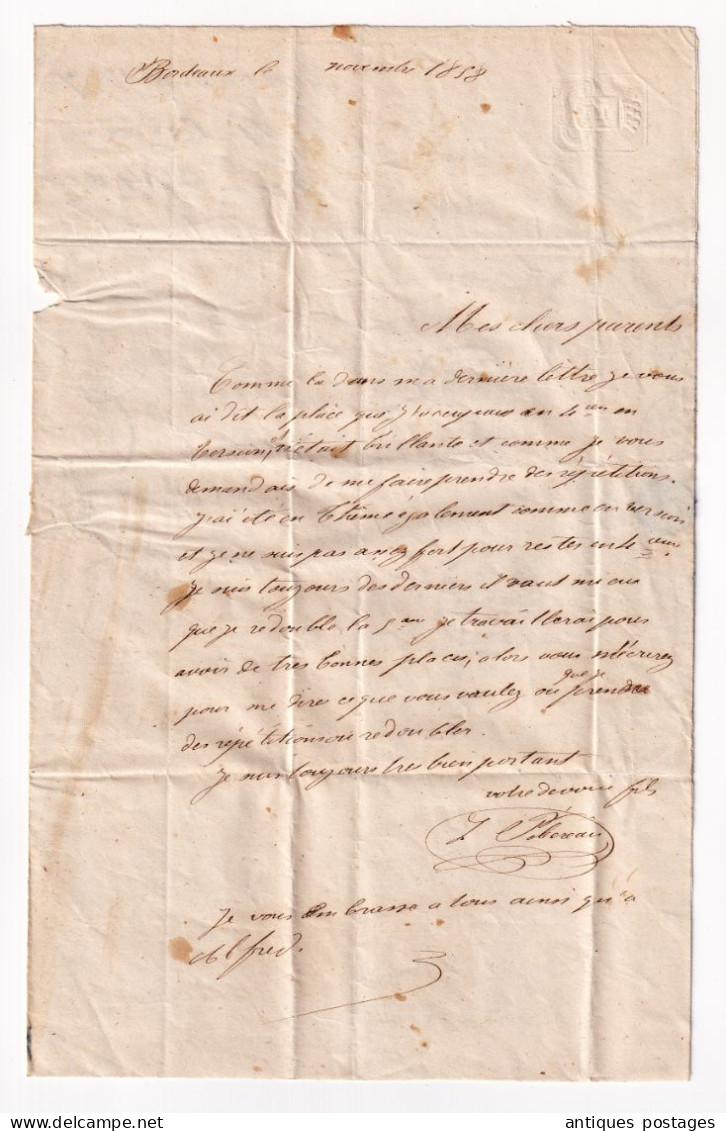 Bordeaux le novembre 1858
Mes chers parents
Comme la dans ma dernière lettre je vous
ai dit la place que j'occupais en 4eme en
version, n'etait brillante et comme je vous
demandais de me faire prendre des répétitions.
J'ai été en thême également comme en version
et je ne suis pas assez fort pour rester en 4eme
Je suis toujours des derniers il vaut mieux
que je redouble la 5eme je travaillerai pour
avoir de tres bonnes places; alors vous m'écrirez
pour me dire ce que vous voulez ou que je prenne
des répétitions ou redoubler.
Je suis toujours tres bien portant
votre devoué fils
Je vous embrasse a tous ainsi qu'a
Alfred.
antiques postages